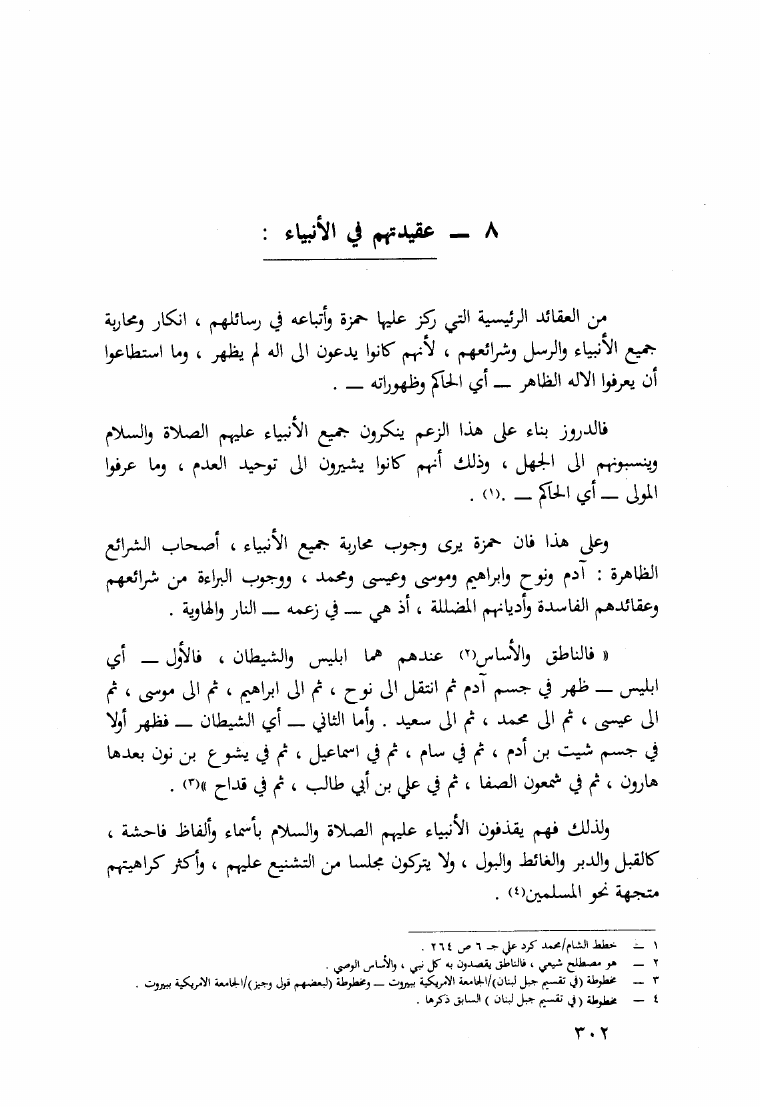 ٨ ــ عقيدتهم في الأنبياء :
من العقائد الرئيسية التي ركز عليها حمزة وأتباعه في رسائلهم ، انكار ومحاربة
جميع الأنبياء والرسل وشرائعهم ، لأنهم كانوا يدعون الى اله لم يظهر ، وما استطاعوا
أن يعرفوا الاله الظاهر ــ أي الحاكم وظهوراته ــ .
فالدروز بناء على هذا الزعم ينكرون جميع الأنبياء عليهم الصلاة والسلام
وينسبونهم الى الجهل ، وذلك أنهم كانوا يشيرون الى توحيد العدم ، وما عرفوا
المولى ــ أي الحاكم ــ .(١) .
وعلى هذا فان حمزة يرى وجوب محاربة جميع الأنبياء ، أصحاب الشرائع
الظاهرة : آدم ونوح وابراهيم وموسى وعيسى ومحمد ، ووجوب البراءة من شرائعهم
وعقائدهم الفاسدة وأديانهم المضللة ، أذ هي ــ في زعمه ــ النار والهاوية .
« فالناطق والأساس(٢) عندهم هما ابليس والشيطان ، فالأول ــ أي
ابليس ــ ظهر في جسم آدم ثم انتقل الى نوح ، ثم الى ابراهيم ، ثم الى موسى ، ثم
الى عيسى ، ثم الى محمد ، ثم الى سعيد . وأما الثاني ــ أي الشيطان ــ فظهر أولا
في جسم شيت بن أدم ، ثم في سام ، ثم في اسماعيل ، ثم في يشوع بن نون بعدها
هارون ، ثم في شمعون الصفا ، ثم في علي بن أبي طالب ، ثم في قداح »(٣) .
ولذلك فهم يقذفون الأنبياء عليهم الصلاة والسلام بأسماء وألفاظ فاحشة ،
كالقبل والدبر والغائط والبول ، ولا يتركون مجلسا من التشنيع عليهم ، وأكثر كراهيتهم
متجهة نحو المسلمين(٤) .
١ ــ خطط الشام/محمد كرد علي جـ ٦ ص ٢٦٤ .
٢ ــ هو مصطلح شيعي ، فالناطق يقصدون به كل نبي ، والأساس الوصي .
٣ ــ مخطوطة (في تقسيم جبل لبنان)/الجامعة الامريكية ببيروت ــ ومخطوطة (لبعضهم قول وجيز)/الجامعة الامريكية ببيروت .
٤ ــ مخطوطة ( في تقسيم جبل لبنان ) السابق ذكرها .
٣٠٢